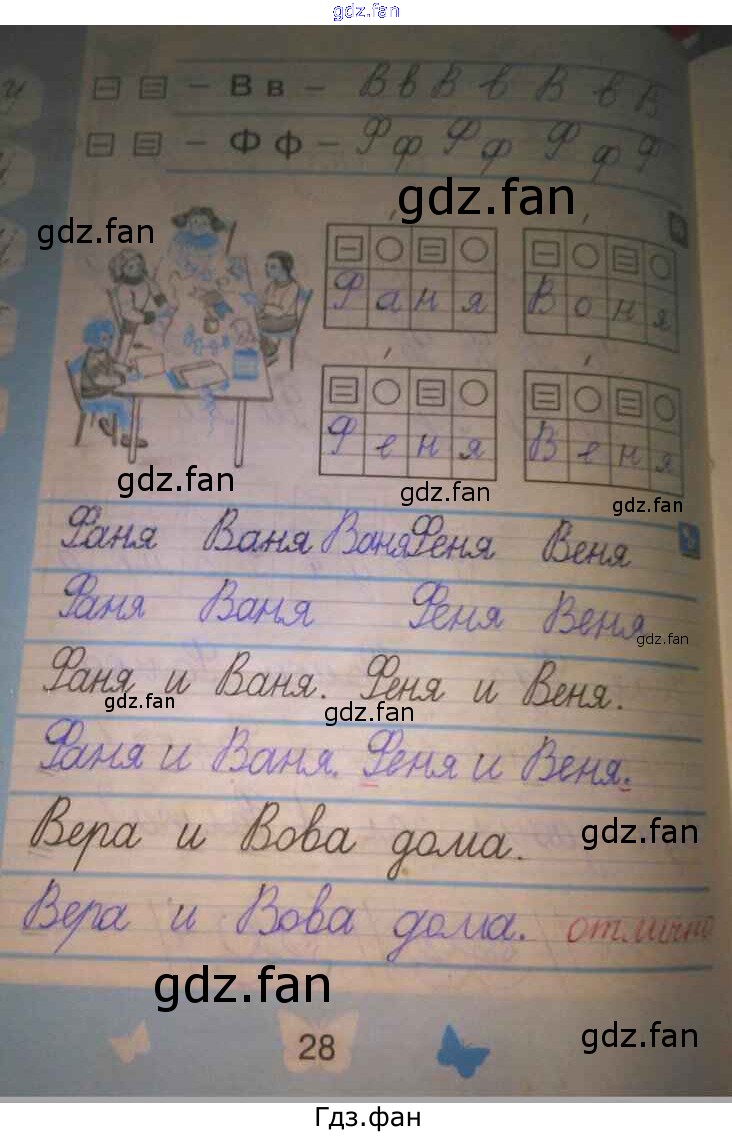 gdz.fan
– В в – В в В в В в В
– Ф ф – Ф ф Ф ф Ф ф Ф
gdz.fan
gdz.fan
Ф а н я
В о н я
Ф е н я
В е н я
gdz.fan
gdz.fan
gdz.fan
Фаня Ваня Ваня Феня Веня
Фаня Ваня Феня Веня
gdz.fan
Фаня и Ваня. Феня и Веня.
gdz.fan
gdz.fan
Фаня и Ваня. Феня и Веня.
Вера и Вова дома.
gdz.fan
Вера и Вова дома. отлично
gdz.fan
28
gdz.fan
Гдз.фан